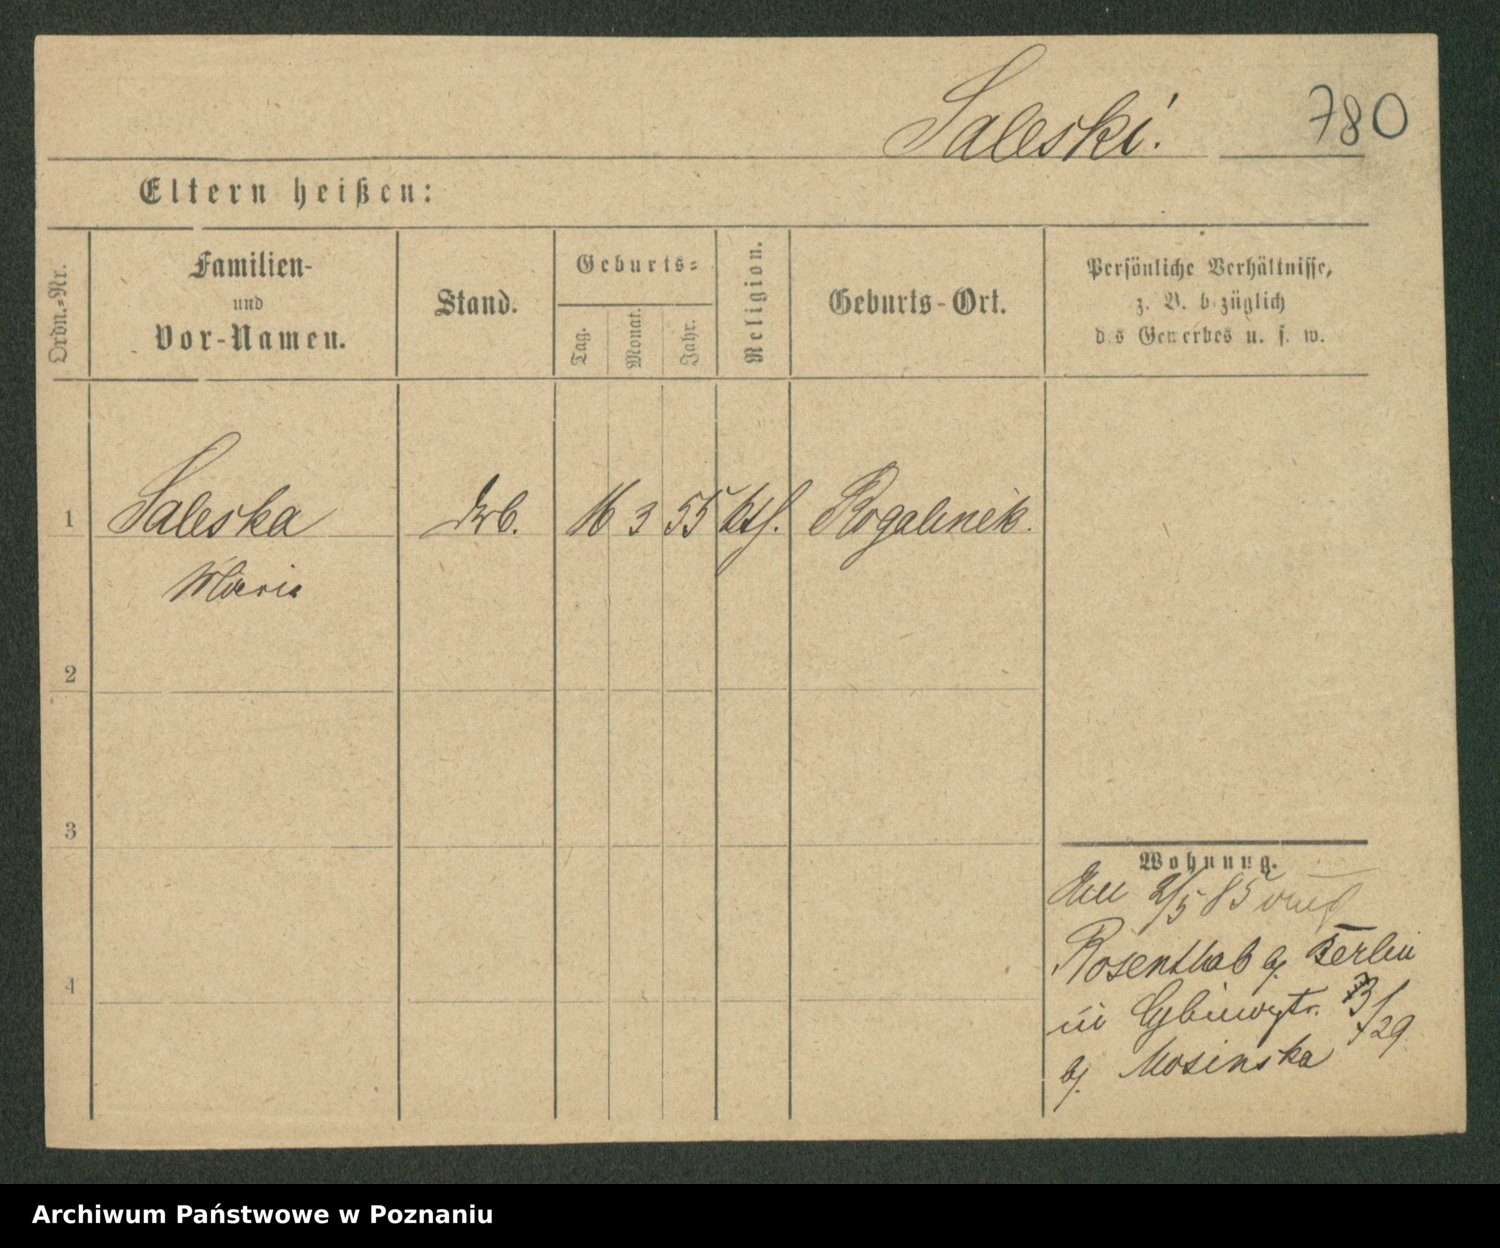 Saleski.
780
Eltern heißen:
Ordn.-Nr.
Familien-
und
Vor-Namen.
Stand.
Geburts-
Tag.
Monat.
Jahr.
Religion.
Geburts-Ort.
Persönliche Verhältnisse,
z. B. bezüglich
des Gewerbes u. s. w.
1 Saleska 16 3 55 kth. Rogalinek.
Marie
2
3
4
Wohnung.
2/5 85
Rosenthal b. Berlin
in
b. Mosinska /29
Archiwum Państwowe w Poznaniu